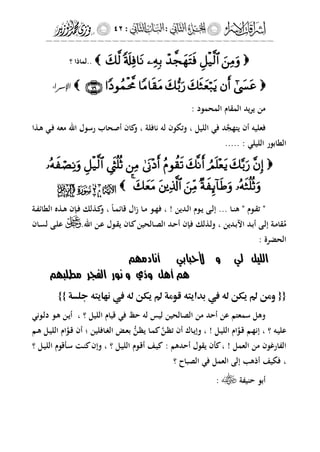 إشراقات الإسراء : الجزء الثاني : الباب الثاني : ٤٢
﴿ وَمِنَ ٱلَّيۡلِ فَتَهَجَّدۡ بِهِۦ نَافِلَةٗ لَّكَ ﴾ .. لماذا ؟
﴿ عَسَىٰٓ أَن يَبۡعَثَكَ رَبُّكَ مَقَامٗا مَّحۡمُودٗا ٧٩ ﴾ الإسراء
من يريد المقام المحمود :
فعليه أن يتهجَّد في الليل ، وتكون له نافلة ، وكان أصحاب رسول الله معه في هذا
الطابور الليلي : .....
﴿ إِنَّ رَبَّكَ يَعۡلَمُ أَنَّكَ تَقُومُ أَدۡنَىٰ مِن ثُلُثَيِ ٱلَّيۡلِ وَنِصۡفَهُۥ
وَثُلُثَهُۥ وَطَآئِفَةٞ مِّنَ ٱلَّذِينَ مَعَكَ ﴾
" تقوم " هنا ... إلى يوم الدين ! ، فهو ما زال قائماً ، وكذلك فإن هذه الطائفة
مُقامة إلى أبد الآبدين ، ولذلك فإن أحد الصالحين كان يقول عن الله على لسان
الحضرة :
الليل لي و لأحبابي أنادمهم
هم أهل ودي و نور الفجر مطلبهم
{{ ومن لم يكن له في بدايته قومة لم يكن له في نهايته جلسة }}
وهل سمعتم عن أحد من الصالحين ليس له حظ في قيام الليل ؟ ، أين هو دلوني
عليه ؟ ، إنهم قوَّام الليل ! ، وإياك أن تظن كما يظن بعض الغافلين ! أن قوَّام الليل هم
الفارغون من العمل ! ، كأن يقول أحدهم : كيف أقوم الليل ؟ ، وإن كنت سأقوم الليل ؟
، فكيف أذهب إلى العمل في الصباح ؟
أبو حنيفة :